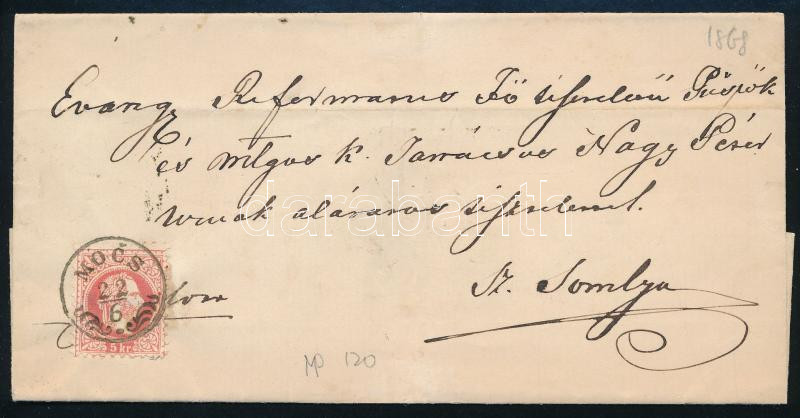 1868
Evang. Reformatus Fő tiszteletű Püspök
és mlgos k. Tanácsos Nagy Péter
Urnak alázatos tisztelettel.
Sz. Somlyo
MOČS
22
6
5 kr
MP 120
darabanth